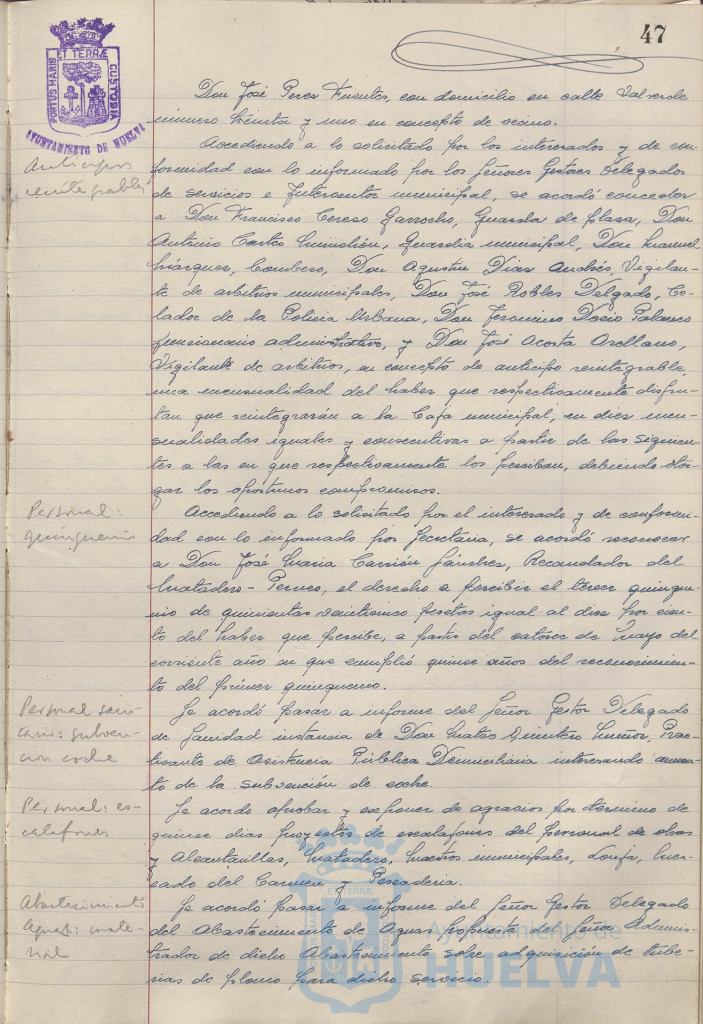 47
PORTUS MARIS ET TERRÆ CUSTODIA
AYUNTAMIENTO DE HUELVA
Don José Perez Fuentes, con domicilio en calle Valverde
número treinta y uno en concepto de vecino.
Anticipos
reintegrables
Accediendo a lo solicitado por los interesados y de con-
formidad con lo informado por los Señores Gestores Delegados
de servicios e Interventor municipal, se acordó conceder
a Don Francisco Cerezo Garrocho, Guarda de plaza, Don
Antonio Castro Guardia municipal, Don Manuel
Márquez, bombero, Don Agustin Dias Andrés, Vigilan-
te de arbitrios municipales, Don José Robles Delgado, Ce-
lador de la Policia Urbana, Don Jeronimo Docio Palanco
funcionario administrativo, y Don José Acosta Arellano,
Vigilante de arbitrios, en concepto de anticipo reintegrable,
una mensualidad del haber que respectivamente disfru-
tan que reintegrarán a la Caja municipal, en diez men-
sualidades iguales y consecutivas a partir de las siguien-
tes a las en que respectivamente los perciban, debiendo otor-
gar los oportunos compromisos.
Personal:
quinquenio
Accediendo a lo solicitado por el interesado y de conformi-
dad con lo informado por Secretaria, se acordó reconocer
a Don José Maria Carrión Sánchez, Recaudador del
Matadero- Perneo, el derecho a percibir el tercer quinque-
nio de quinientas veinticinco pesetas igual al diez por cien-
to del haber que percibe, a partir del catorce de Mayo del
corriente año en que cumplió quince años del reconocimien-
to del primer quinquenio.
Personal sani-
tario: subven-
cion coche
Se acordó pasar a informe del Señor Gestor Delegado
de Sanidad instancia de Don Mateo Quintero Muñoz, Prac-
ticante de Asistencia Pública Domiciliaria interesando aumen-
to de la subvención de coche.
Personal: es-
calafones
Se acordo aprobar y exponer de agracios por término de
quince dias proyectos de escalafones del personal de obras
y Alcantarillas, Matadero, Maestros municipales, Lonja, Mer-
cado del Carmen y Pescaderia.
Abastecimiento
Aguas: mate-
rial
Se acordó pasar a informe del Señor Gestor Delegado
del Abastecimiento de Aguas propuesta del Señor Adminis-
trador de dicho Abastecimiento sobre adquisición de tube-
rias de plomo para dicho servicio.
Ayuntamiento de
HUELVA